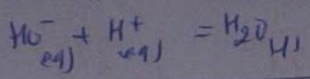 HO⁻(aq) + H⁺(aq) = H₂O(l)